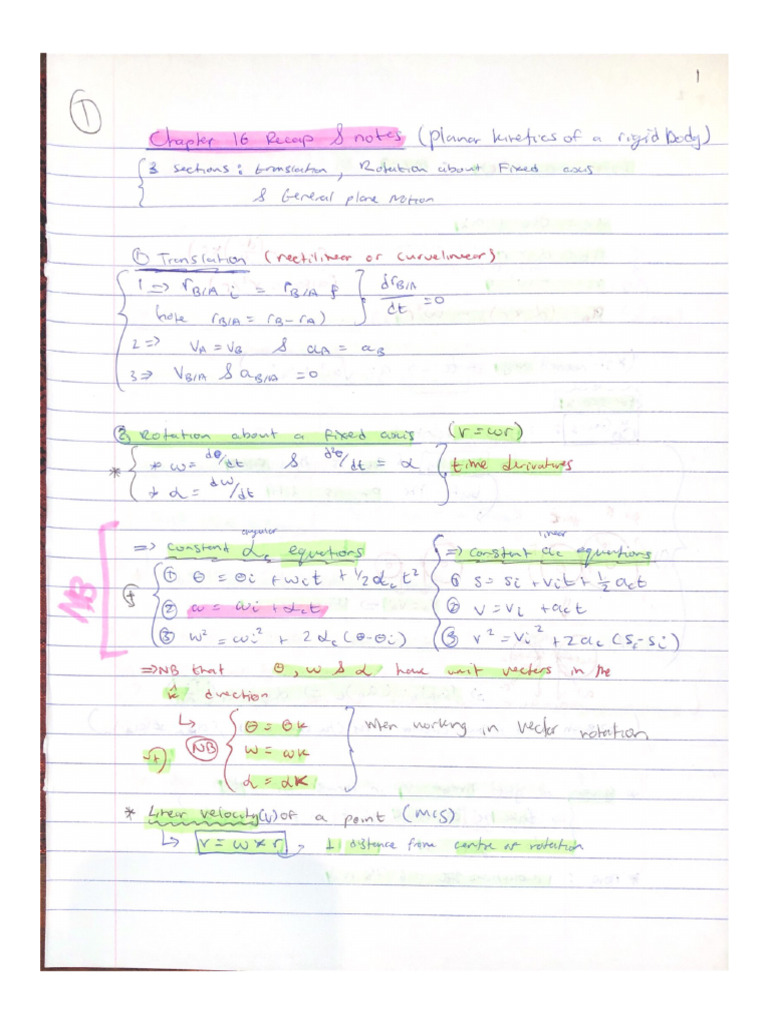 1
①
Chapter 16 Recap & notes (planar kinetics of a rigid body)
3 sections: translation, Rotation about Fixed axis
& General plane Motion
① Translation (rectilinear or curvelinear)
1 => r_B/A i = r_B/A f } dr_B/A / dt = 0
(note r_B/A = r_B - r_A)
2 => V_A = V_B & a_A = a_B
3 => V_B/A & a_B/A = 0
② Rotation about a fixed axis (v = ωr)
* * ω = dθ/dt & d²θ/dt = α } time derivatives
* α = dω/dt
angular linear
NB
=> constant α_c equations => constant a_c equations
① θ = θi + ωit + 1/2 α_c t² ① s = si + vit + 1/2 a_c t
② ω = ωi + α_c t ② v = vi + a_c t
③ ω² = ωi² + 2α_c (θ-θi) ③ v² = vi² + 2a_c (s_f - si)
=> NB that θ, ω & α have unit vectors in the
k̂ direction
↳ θ = θk } when working in vector rotation
NB ω = ωk
α = αk
* Linear velocity (v) of a point (m/s)
↳ v = ω * r → ⊥ distance from centre of rotation